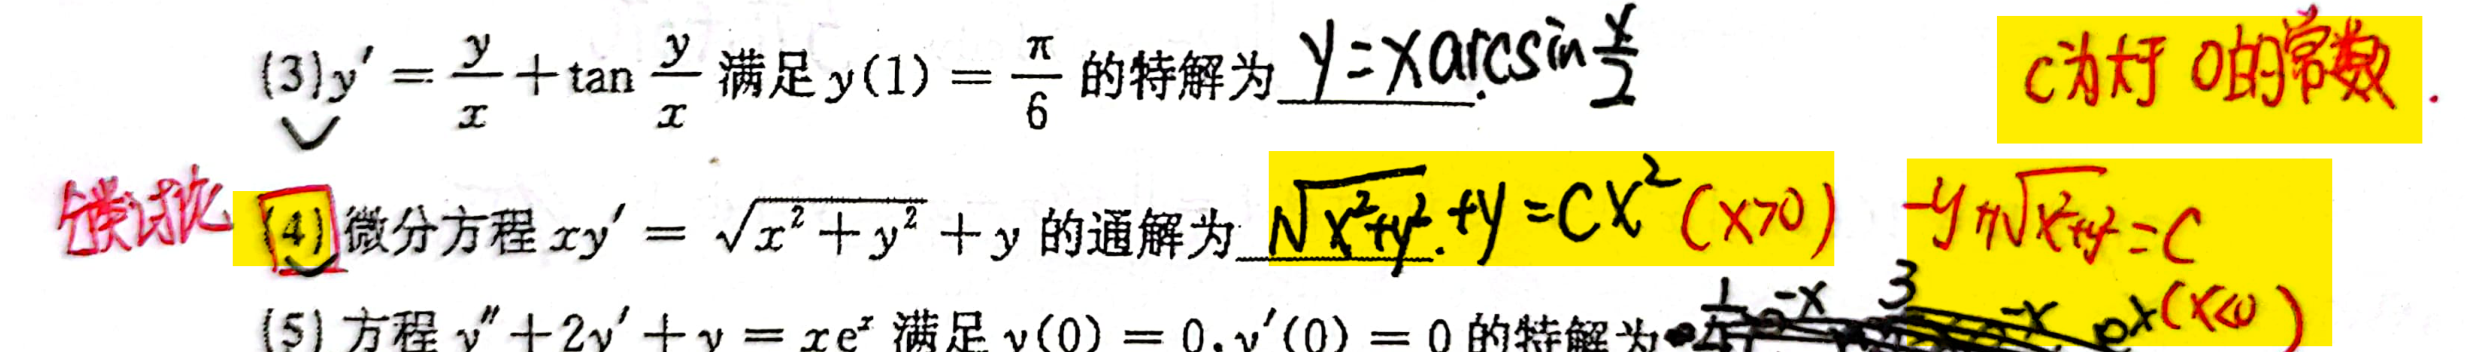 (3) y′ = y/x + tan y/x 满足 y(1) = π/6 的特解为 y = x arcsin x/2
C为大于0的常数.
分类讨论 (4) 微分方程 xy′ = √(x² + y²) + y 的通解为 √(x²+y²) + y = Cx² (x>0)
-y+√(x²+y²) = C
(x<0)
(5) 方程 y″ + 2y′ + y = xeˣ 满足 y(0) = 0, y′(0) = 0 的特解为